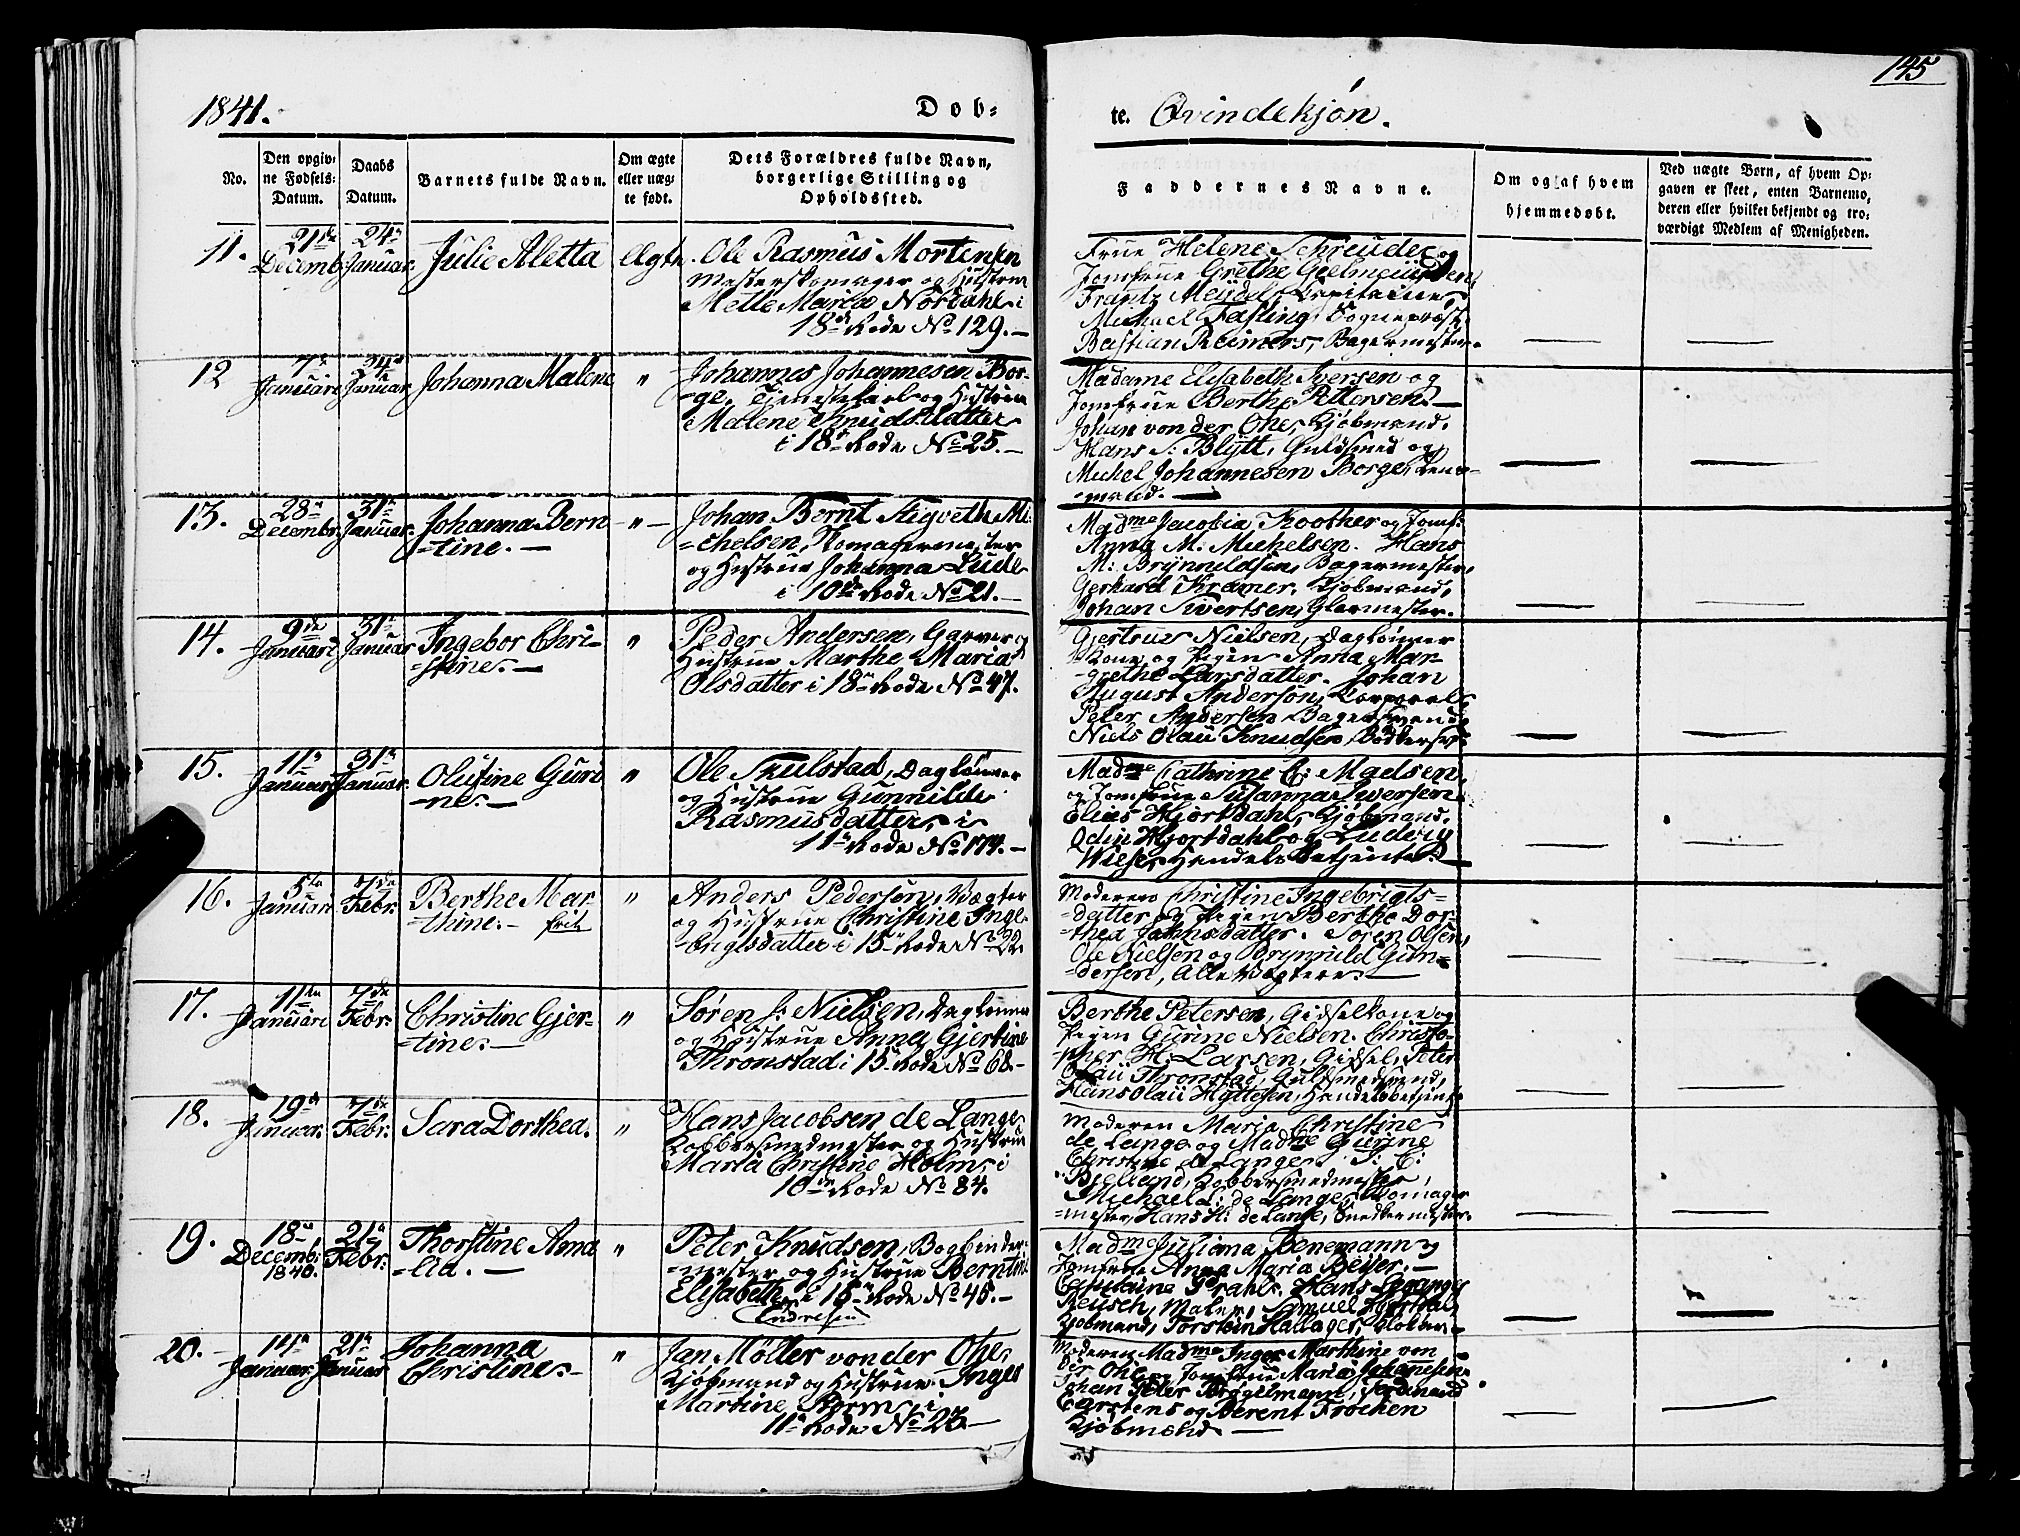 145
1841.
Dob-
te. Qvindekjøn.
No.
Den opgiv-
ne Fødsels-
Datum.
Daabs
Datum.
Barnets fulde Navn.
Om ægte
eller uæg-
te født.
Dets Forældres fulde Navn,
borgerlige Stilling og
Opholdssted.
Faddernes Navne.
Om og af hvem
hjemmedøbt.
Ved uægte Børn, af hvem Op-
gaven er skeet, enten Barnemo-
deren eller hvilket bekjendt og tro-
værdigt Medlem af Menigheden.
11.
21de
Decemb.
24
Januar.
Julie Aletta
Ægte.
Ole Rasmus Mortensen
Mesterskomager og Hustrue
Mette Maria Nordahl i
18de Rode No 129.
Frue Helene Schreuder og
Jomfrue Grethe
Frantz Meydel, Capitaine,
Michael Fasting, Sognepræst,
Bastian Reimers, Bagermester.
12
7de
Januari
24de
Januar
Johanna Malene
"
Johannes Johannesen Bor-
-ge, Tjenestekarl og Hustrue
Malene Knudsdatter
i 18de Rode No 25.
Madame Elisabeth Iversen og
Jomfrue Berthe Pettersen.
Johan von der Ohe, Kjøbmand.
Hans S. Blytt, Guldsmed og
Michel Johannesen Borge, Bon-
-mand.
13.
28de
Decembr.
31te
Januar.
Johanna Bern
-tine.
"
Johan Bernt Sigveth Mi-
-chelsen, Skomagermester
og Hustrue Johanna Lude
i 10de Rode No 21.
Madme Jacobia Koother og Jomf:
Anna M. Michelsen. Hans
M: Brynnildsen, Bagermester,
Gerhard Kramer, Kjøbmand,
Johan Sivertsen, Glarmester.
14.
9de
Januari
31te
Januar
Ingebor Chri-
-stine.
"
Peder Andersen, Garver og
Hustrue Marthe Maria
Olsdatter i 18de Rode No 47.
Gjertrue Nielsen, Daglønner
Kone og Pigen Anna Mar-
-grethe Larsdatter. Johan
August Anderson, Corporal,
Peter Andersen Bagersvend,
Niels Olaii Knudsen,
15.
11te
Januar
31te
Januar.
Olustine Guri
-ne.
"
Ole Skulstad, Daglønner
og Hustrue Gunnilde
Rasmusdatter, i
11te Rode No 174.
Madme Cathrine C: Madsen,
og Jomfrue Susanna Iversen
Elias Hjortdahl, Kjøbmand.
Odin Hjortdahl og Ludvig
Wiese, Handelsbetjenter.
16.
5te
Januari
7de
Febr:
Berthe Mar-
-thine.
frit
"
Anders Pederson, Vægter
og Hustrue Christine Inge-
-brigtsdatter i 15de Rode No 22
Moderen Christine Ingebrigts-
-datter og Pigen Berthe Dor-
-thea Johnsdatter. Søren Olsen,
Ole Nielsen og Brynnild Gun-
-dersen, Alle Vægtere.
17.
11te
Januari
7de
Febr:
Christine Gjer-
-tine.
"
Søren S: Nielsen, Dagløner
og Hustrue Anna Gjertine
Thronstad i 15 Rode No 68.
Berthe Petersen, Gidselkone og
Pigen Gurine Nielsen. Christo-
-pher H. Larsen, Gidsel, Peter
Olaii Thronstad, Guldsmedsvend,
Hans Olaii Hyttesen, Handelsbetjent.
18.
19de
Januar.
7de
Febr:
Sara Dorthea.
"
Hans Jacobsen de Lange,
Kobbersmedmester og Hustrue
Maria Christine Holm, i
10de Rode No 84.
Moderen Maria Christine
de Lange og Madme Gurine
Christine de Lange. S: C:
Bjelland, Kobbersmedmester,
Michael L: de Lange, Skomager
-mester, Hans H: de Lange, Snedkermester.
19.
18de
Decemb:
1840.
21de
Febr:
Thorstine Ama
-lia.
"
Peter Knudsen, Bogbinder-
-mester og Hustrue Berntine
Elisabeth, i 16de Rode No 45.
Endresen
Madme Juliana Benemann og
Jomfrue Anna Maria Beyer.
Capitaine Prahl, Hans
Reusch, Maler, Samuel Hjortdal,
Kjøbmand, Torstein Hallager,
20.
14de
Januar.
21de
Januar
Johanna
Christine.
"
Jan Møller von der Ohe,
Kjøbmand og Hustrue Inger
Martine Korm, i
11te Rode No 23
Moderen Madme Inger Marthine von
der Ohe og Jomfrue Maria Johanesen.
Johan Peter Brøgelmann, Ferdinand
Carstens og Berent Frochen
Kjøbmænd